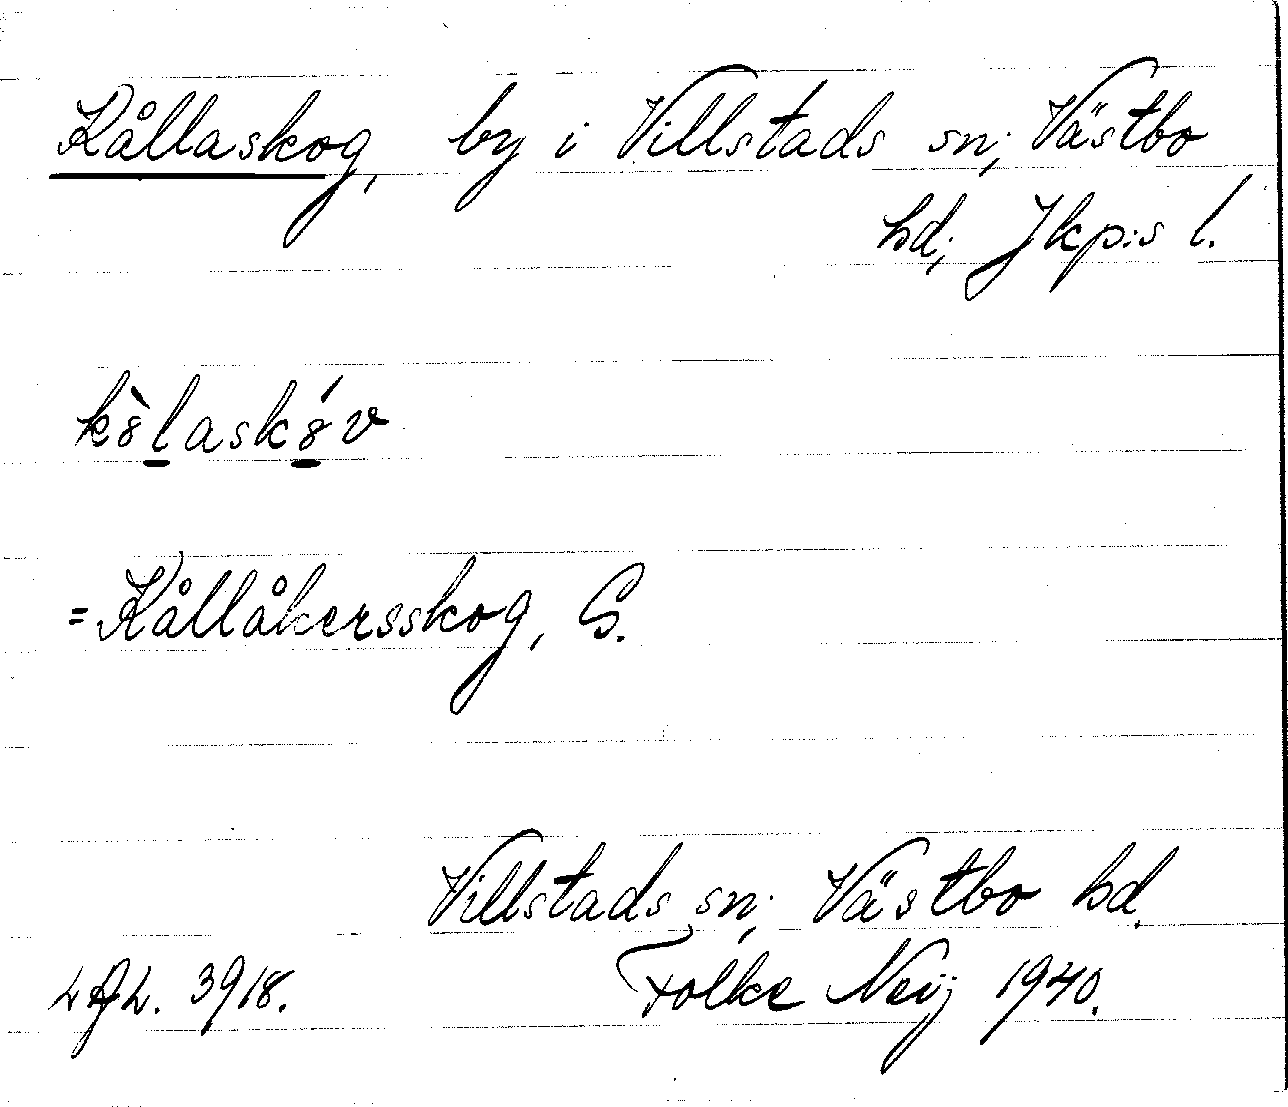 Kållaskog, by i Villstads sn; Västbo
hd; Jkp:s l.
k8̀l̲ask8̲́v
=Kållåkersskog, G.
Villstads sn; Västbo hd.
LAL. 3918. Folke Neij 1940.